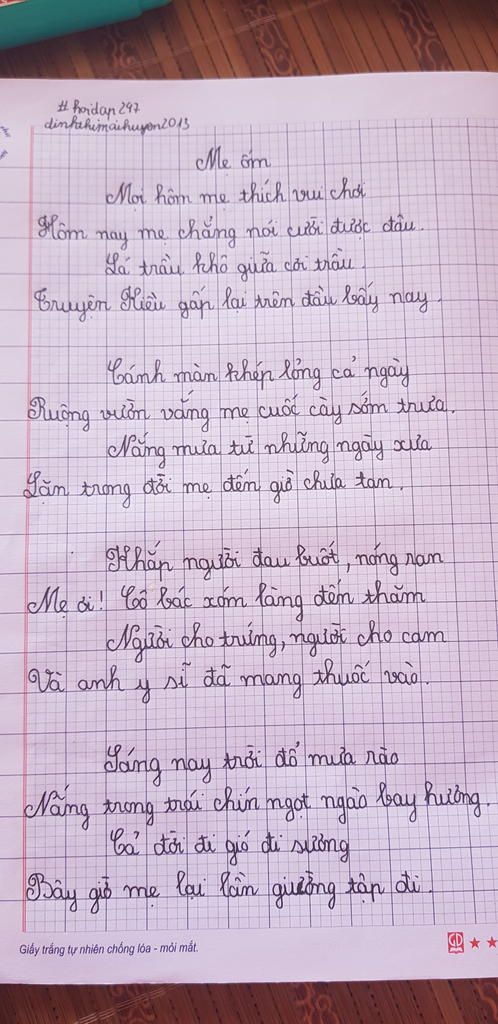 #hoidap247
dinhthimaihuyen2013
Mẹ ốm
Mọi hôm mẹ thích vui chơi
Hôm nay mẹ chẳng nói cười được đâu.
Lá trầu khô giữa cơi trầu
Truyện Kiều gấp lại trên đầu bấy nay.
Cánh màn khép lỏng cả ngày
Ruộng vườn vắng mẹ cuốc cày sớm trưa.
Nắng mưa từ những ngày xưa
Lặn trong đời mẹ đến giờ chưa tan.
Khắp người đau buốt, nóng ran
Mẹ ơi! Cô bác xóm làng đến thăm
Người cho trứng, người cho cam
Và anh y sĩ đã mang thuốc vào.
Sáng nay trời đổ mưa rào
Nắng trong trái chín ngọt ngào bay hương.
Cả đời đi gió đi sương
Bây giờ mẹ lại lần giường tập đi.
Giấy trắng tự nhiên chống lóa - mỏi mắt.